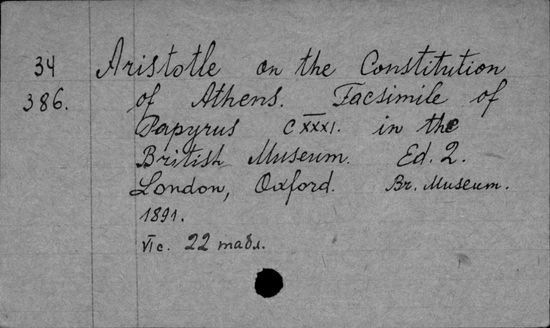 34 Aristotle on the Constitution
386. of Athens. Facsimile of
Papyrus CXXXI. in the
British Museum. Ed. 2.
London, Oxford. Br. Museum.
1891.
VI c. 22 табл.